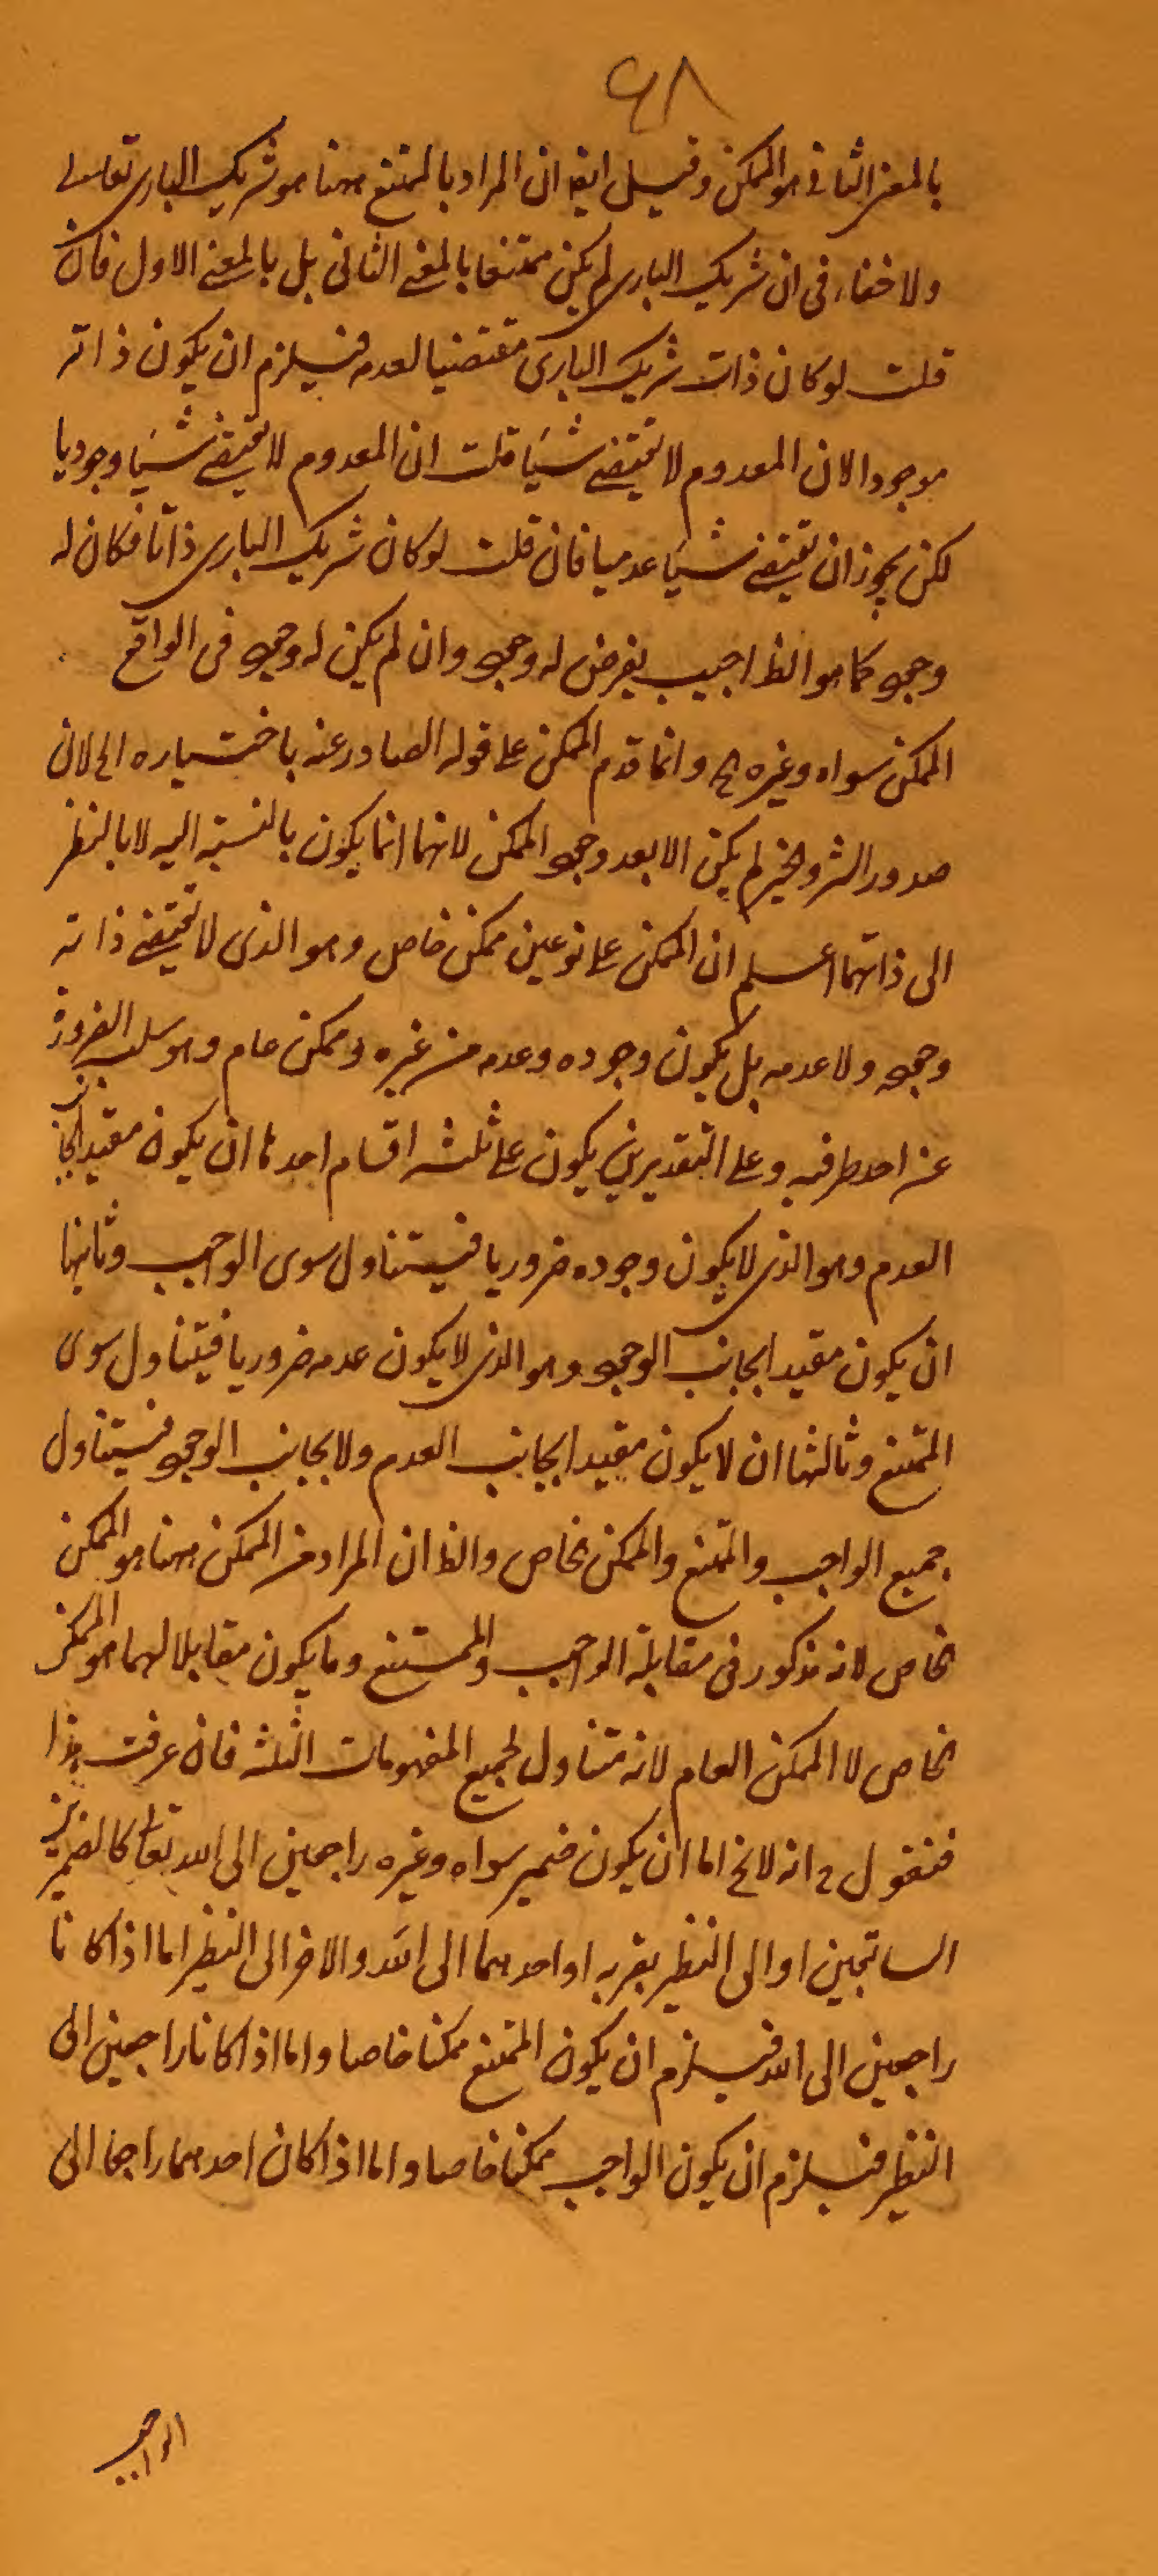 ٦٨
بالمعنى الثانى هو الممكن وقيل ايضا ان المراد بالممتنع ههنا هو شريك البارى تعالى
ولا خفاء فى ان شريك البارى لم يكن ممتنعا بالمعنى الثانى بل بالمعنى الاول فان
قلت لو كان ذات شريك البارى مقتضيا لعدمه فيلزم ان يكون ذاته
موجودا لان المعدوم لا يقتضى شيئا قلت ان المعدوم لا يقتضى شيئا وجوديا
لكن يجوز ان يقتضى شيئا عدميا فان قلت لو كان شريك البارى ذاتا فكان له
وجود كما هو الظ اجيب يفرض له وجود وان لم يكن له وجود فى الواقع
الممكن سواه وغيره ح وانما قدم الممكن على قوله الصادر عنه باختياره الخ لان
صدور الشر والخير لم يكن الا بعد وجود الممكن لانهما انما يكون بالنسبة اليه لا بالنظر
الى ذاتهما اعلم ان الممكن على نوعين ممكن خاص وهو الذى لا يقتضى ذاته
وجوده ولا عدمه بل يكون وجوده وعدمه من غيره وممكن عام وهو سلب الضرورة
عن احد طرفيه وعلى التقديرين يكون على ثلثة اقسام احدها ان يكون مقيدا بجانب
العدم وهو الذى لا يكون وجوده ضروريا فيتناول سوى الواجب وثانيها
ان يكون مقيدا بجانب الوجود وهو الذى لا يكون عدمه ضروريا فيتناول سوى
الممتنع وثالثها ان لا يكون مقيدا بجانب العدم ولا بجانب الوجود فيتناول
جميع الواجب والممتنع والممكن الخاص والظ ان المراد من الممكن ههنا هو الممكن
الخاص لانه مذكور فى مقابلة الواجب والممتنع وما يكون مقابلا لهما هو الممكن
الخاص لا الممكن العام لانه متناول لجميع المفهومات الثلثة فان عرفت هذا
فنقول ح انه لا يخ اما ان يكون ضمير سواه وغيره راجعين الى الله تعالى كالضميرين
السابقين او الى النظير بقربه او احدهما الى الله والاخر الى النظير اما اذا كانا
راجعين الى الله فيلزم ان يكون الممتنع ممكنا خاصا واما اذا كانا راجعين الى
النظير فيلزم ان يكون الواجب ممكنا خاصا واما اذا كان احدهما راجعا الى
الواجب